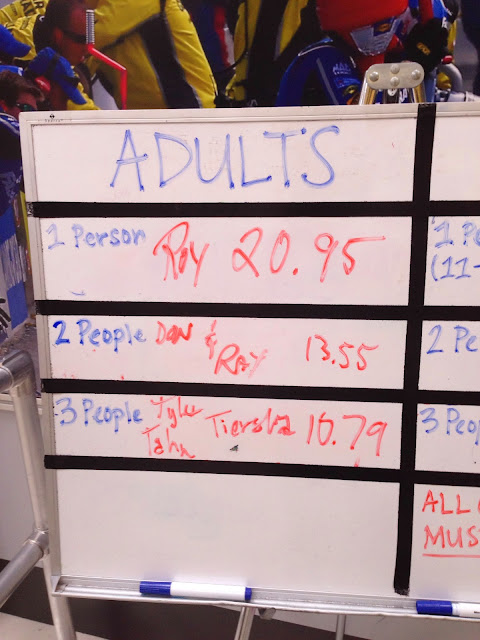 ADULTS
1 Person Roy 20.95
2 People DON & RAY 13.55
3 People Tyler Tiersha 10.79
1 Pe
(11-
2 Pe
3 Peop
ALL
MUS